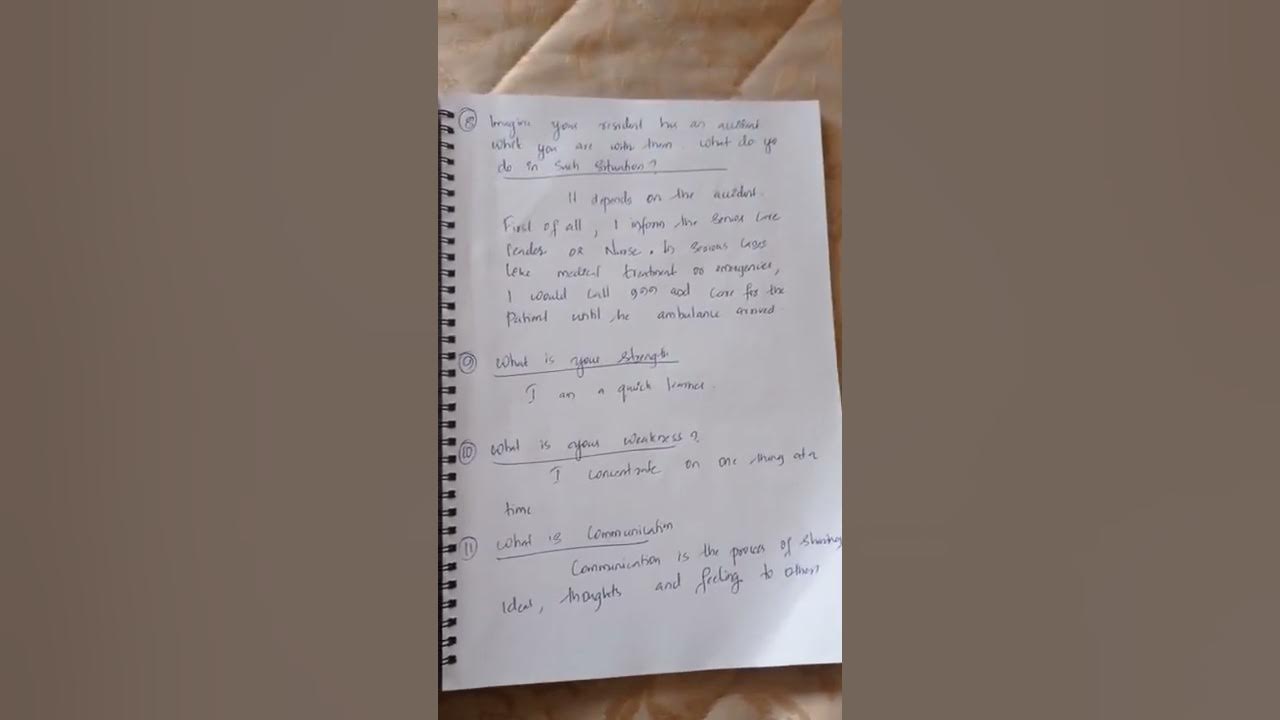 8 Imagine your resident has an accident
while you are with them. What do yo
do in such situation?
It depends on the accident.
First of all, I inform the senior care
leader or Nurse. In serious cases
like medical treatment or emergencies,
I would call 999 and care for the
Patient until the ambulance arrived
9 What is your strength
I am a quick learner.
10 What is your weakness?
I concentrate on one thing at a
time
11 What is Communication
Communication is the process of sharing
Ideas, thoughts and feeling to others